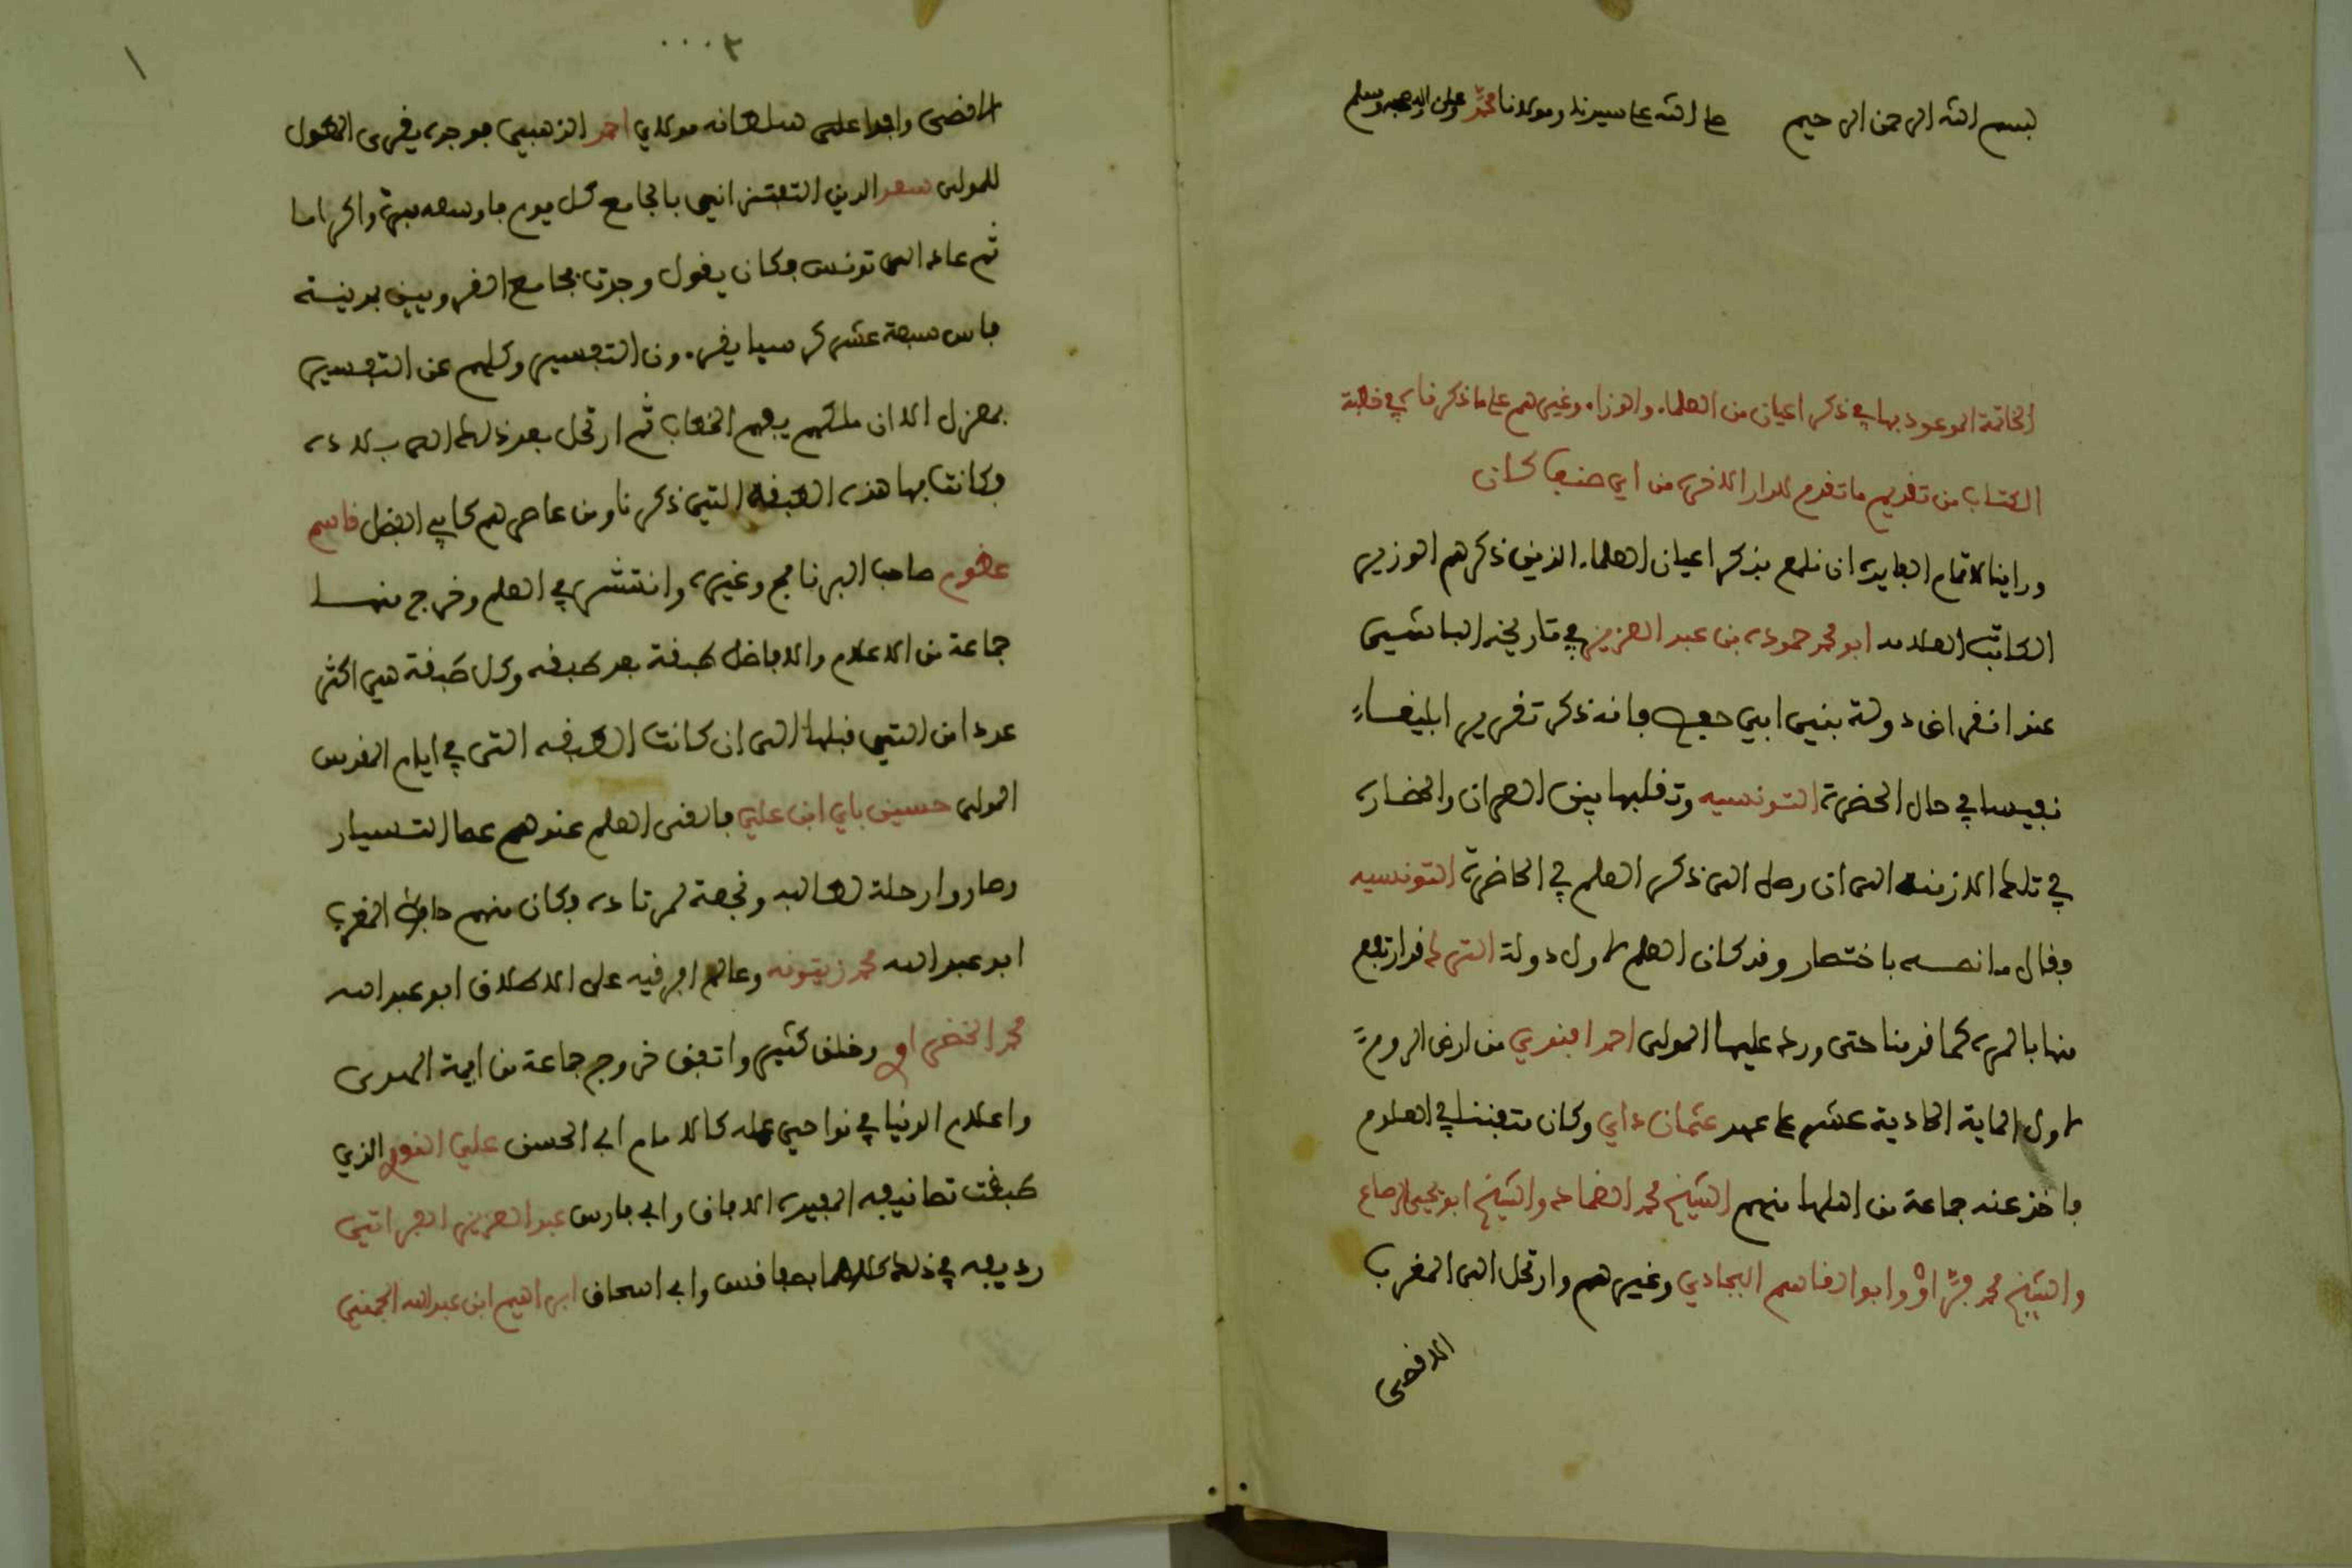 بسم الله الرحمن الرحيم صلى الله على سيدنا ومولانا محمد وعلى اله وصحبه وسلم
الخاتمة الموعود بها في ذكر اعيان من العلماء والوزراء وغيرهم على ما ذكرناه في خطبة
الكتاب من تقديم ما تقدم للدار الاخرى من اي صنف كان
وراينا لاتمام الفايدة ان نلمع بذكر اعيان العلماء الذين ذكرهم الوزير
الكاتب العلامه ابو محمد حموده بن عبد العزيز في تاريخه الباشي
عند انقراض دولة بني ابي حفص فانه ذكر تقرير ابليغا
نفيسا في حال الحضرة التونسيه وتقلبها بين العمران والحضاره
في تلك الازمنه الى ان وصل الى ذكر العلم في الحاضرة التونسيه
وقال ما نصه باختصار وقد كان العلم اول دولة الترك قد ارتفع
منها بالمره كما قدمنا حتى ورد عليها المولى احمد افندي من ارض الروم
اول الماية الحادية عشر على عهد عثمان داي وكان متفننا في العلوم
فاخذ عنه جماعة من اهلها منهم الشيخ محمد الضماد والشيخ ابو يحيى الرصاع
والشيخ محمد قراو وابو القاسم البجادي وغيرهم وارتحل الى المغرب
الاقصى
٠٠٠٢
١
الاقصى وافدا على سلطانه مولاي احمد الذهبي فوجده يقرى المطول
للمولى سعد الدين التفتزاني بالجامع كل يوم فاوسعه مبرة واكراما
ثم عاد الى تونس فكان يقول وجدت بجامع القرويين بمدينة
فاس سبعة عشر كرسيا يقرءون التفسير وكلهم عن التفسير
بمعزل الا ان ملكهم يفهم الخطاب ثم ارتحل بعد ذلك الى بلاده
وكانت بها هذه الطبقة التي ذكرنا ومن عاصرهم كابي الفضل قاسم
عظوم صاحب البرنامج وغيره وانتشر في العلم وخرج منها
جماعة من الاعلام والافاضل طبقة بعد طبقه وكل طبقة هي اكثر
عددا من التي قبلها الى ان كانت الطبقه التي في ايام المقدس
المولى حسين باي ابن علي فالقى العلم عندهم عصا التسيار
وصاروا رحلة لطالب ونجعة لمرتاده وكان منهم حافظ المغرب
ابو عبد الله محمد زيتونه وعالم افريقيه على الاطلاق ابو عبد الله
محمد الخضراوي وخلق كثير واتفق خروج جماعة من ايمة الهدى
واعلام الدنيا في نواحي عمله كالامام ابي الحسن علي النوري الذي
طبقت تصانيفه المفيده الافاق وابي فارس عبد العزيز الفراتي
رديفه في ذلك كلاهما بصفاقس وابي اسحاق ابراهيم ابن عبد الله الجمني